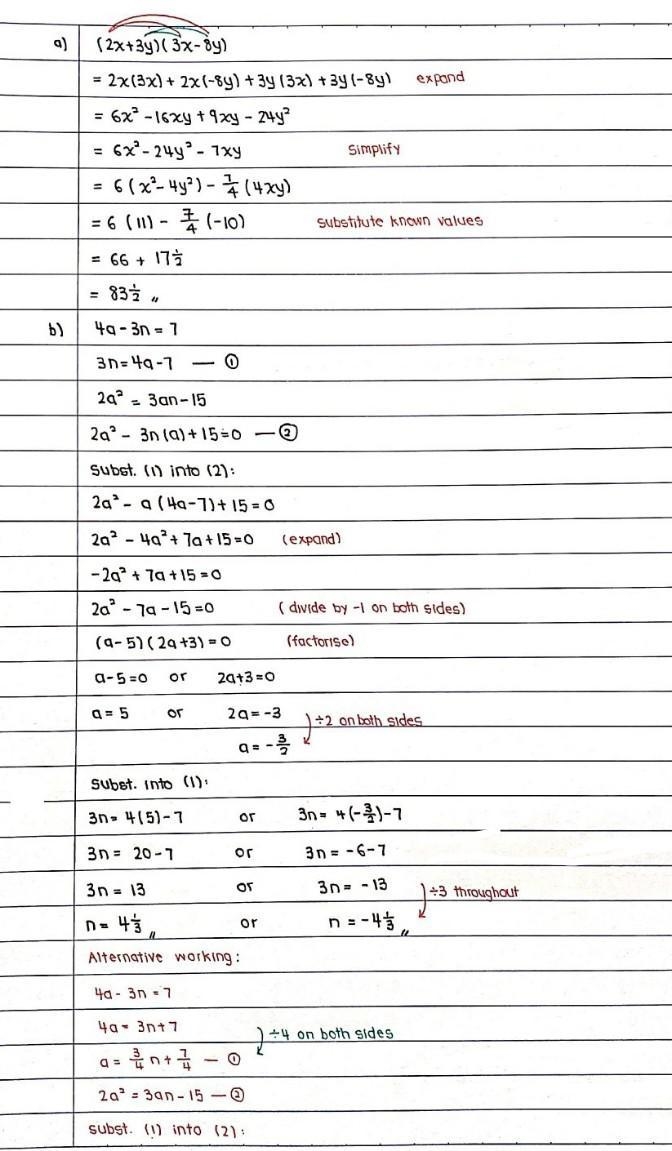 a) (2x+3y)(3x-8y)
= 2x(3x) + 2x(-8y) + 3y(3x) + 3y(-8y) expand
= 6x² - 16xy + 9xy - 24y²
= 6x² - 24y² - 7xy simplify
= 6(x² - 4y²) - 7/4 (4xy)
= 6(11) - 7/4 (-10) substitute known values
= 66 + 17½
= 83½ „
b) 4a - 3n = 7
3n = 4a - 7 — ①
2a² = 3an - 15
2a² - 3n(a) + 15 = 0 — ②
Subst. (1) into (2):
2a² - a(4a-7) + 15 = 0
2a² - 4a² + 7a + 15 = 0 (expand)
-2a² + 7a + 15 = 0
2a² - 7a - 15 = 0 (divide by -1 on both sides)
(a-5)(2a+3) = 0 (factorise)
a-5=0 or 2a+3=0
a = 5 or 2a = -3 ÷2 on both sides
a = -3/2
Subst. into (1):
3n = 4(5)-7 or 3n = 4(-3/2)-7
3n = 20-7 or 3n = -6-7
3n = 13 or 3n = -13 ÷3 throughout
n = 4⅓ „ or n = -4⅓ „
Alternative working:
4a - 3n = 7
4a = 3n+7 ÷4 on both sides
a = 3/4 n + 7/4 — ①
2a² = 3an - 15 — ②
subst. (1) into (2):